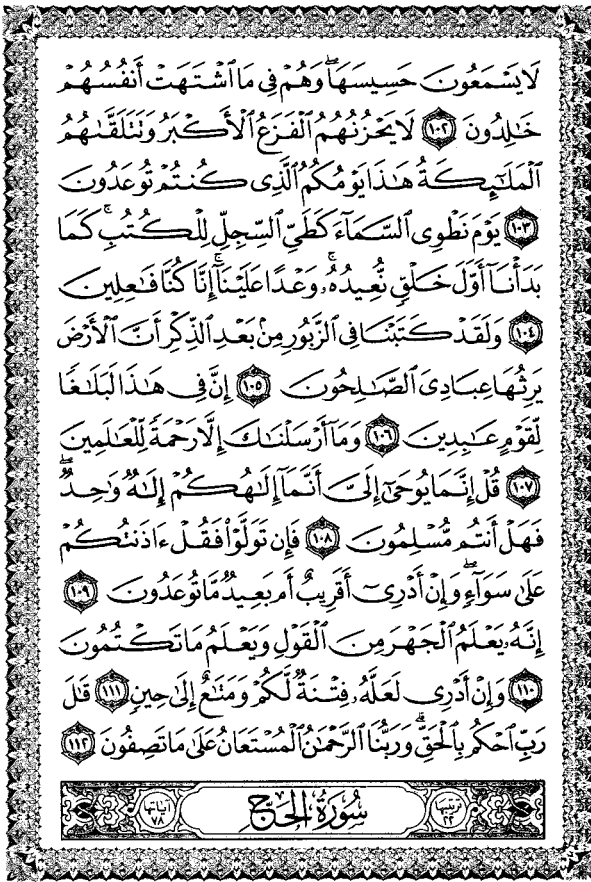 لَا يَسْمَعُونَ حَسِيسَهَا ۖ وَهُمْ فِي مَا ٱشْتَهَتْ أَنفُسُهُمْ
خَٰلِدُونَ ١٠٢ لَا يَحْزُنُهُمُ ٱلْفَزَعُ ٱلْأَكْبَرُ وَتَتَلَقَّىٰهُمُ
ٱلْمَلَٰٓئِكَةُ هَٰذَا يَوْمُكُمُ ٱلَّذِى كُنتُمْ تُوعَدُونَ
١٠٣ يَوْمَ نَطْوِى ٱلسَّمَآءَ كَطَىِّ ٱلسِّجِلِّ لِلْكُتُبِ ۚ كَمَا
بَدَأْنَآ أَوَّلَ خَلْقٍ نُّعِيدُهُۥ ۚ وَعْدًا عَلَيْنَآ ۚ إِنَّا كُنَّا فَٰعِلِينَ
١٠٤ وَلَقَدْ كَتَبْنَا فِى ٱلزَّبُورِ مِنۢ بَعْدِ ٱلذِّكْرِ أَنَّ ٱلْأَرْضَ
يَرِثُهَا عِبَادِىَ ٱلصَّٰلِحُونَ ١٠٥ إِنَّ فِى هَٰذَا لَبَلَٰغًا
لِّقَوْمٍ عَٰبِدِينَ ١٠٦ وَمَآ أَرْسَلْنَٰكَ إِلَّا رَحْمَةً لِّلْعَٰلَمِينَ
١٠٧ قُلْ إِنَّمَا يُوحَىٰٓ إِلَىَّ أَنَّمَآ إِلَٰهُكُمْ إِلَٰهٌ وَٰحِدٌ ۖ
فَهَلْ أَنتُم مُّسْلِمُونَ ١٠٨ فَإِن تَوَلَّوْا۟ فَقُلْ ءَاذَنتُكُمْ
عَلَىٰ سَوَآءٍ ۖ وَإِنْ أَدْرِىٓ أَقَرِيبٌ أَم بَعِيدٌ مَّا تُوعَدُونَ ١٠٩
إِنَّهُۥ يَعْلَمُ ٱلْجَهْرَ مِنَ ٱلْقَوْلِ وَيَعْلَمُ مَا تَكْتُمُونَ
١١٠ وَإِنْ أَدْرِى لَعَلَّهُۥ فِتْنَةٌ لَّكُمْ وَمَتَٰعٌ إِلَىٰ حِينٍ ١١١ قَٰلَ
رَبِّ ٱحْكُم بِٱلْحَقِّ ۗ وَرَبُّنَا ٱلرَّحْمَٰنُ ٱلْمُسْتَعَانُ عَلَىٰ مَا تَصِفُونَ ١١٢
ترتيبها ٢٢ سُورَةُ الحَجِّ آياتها ٧٨